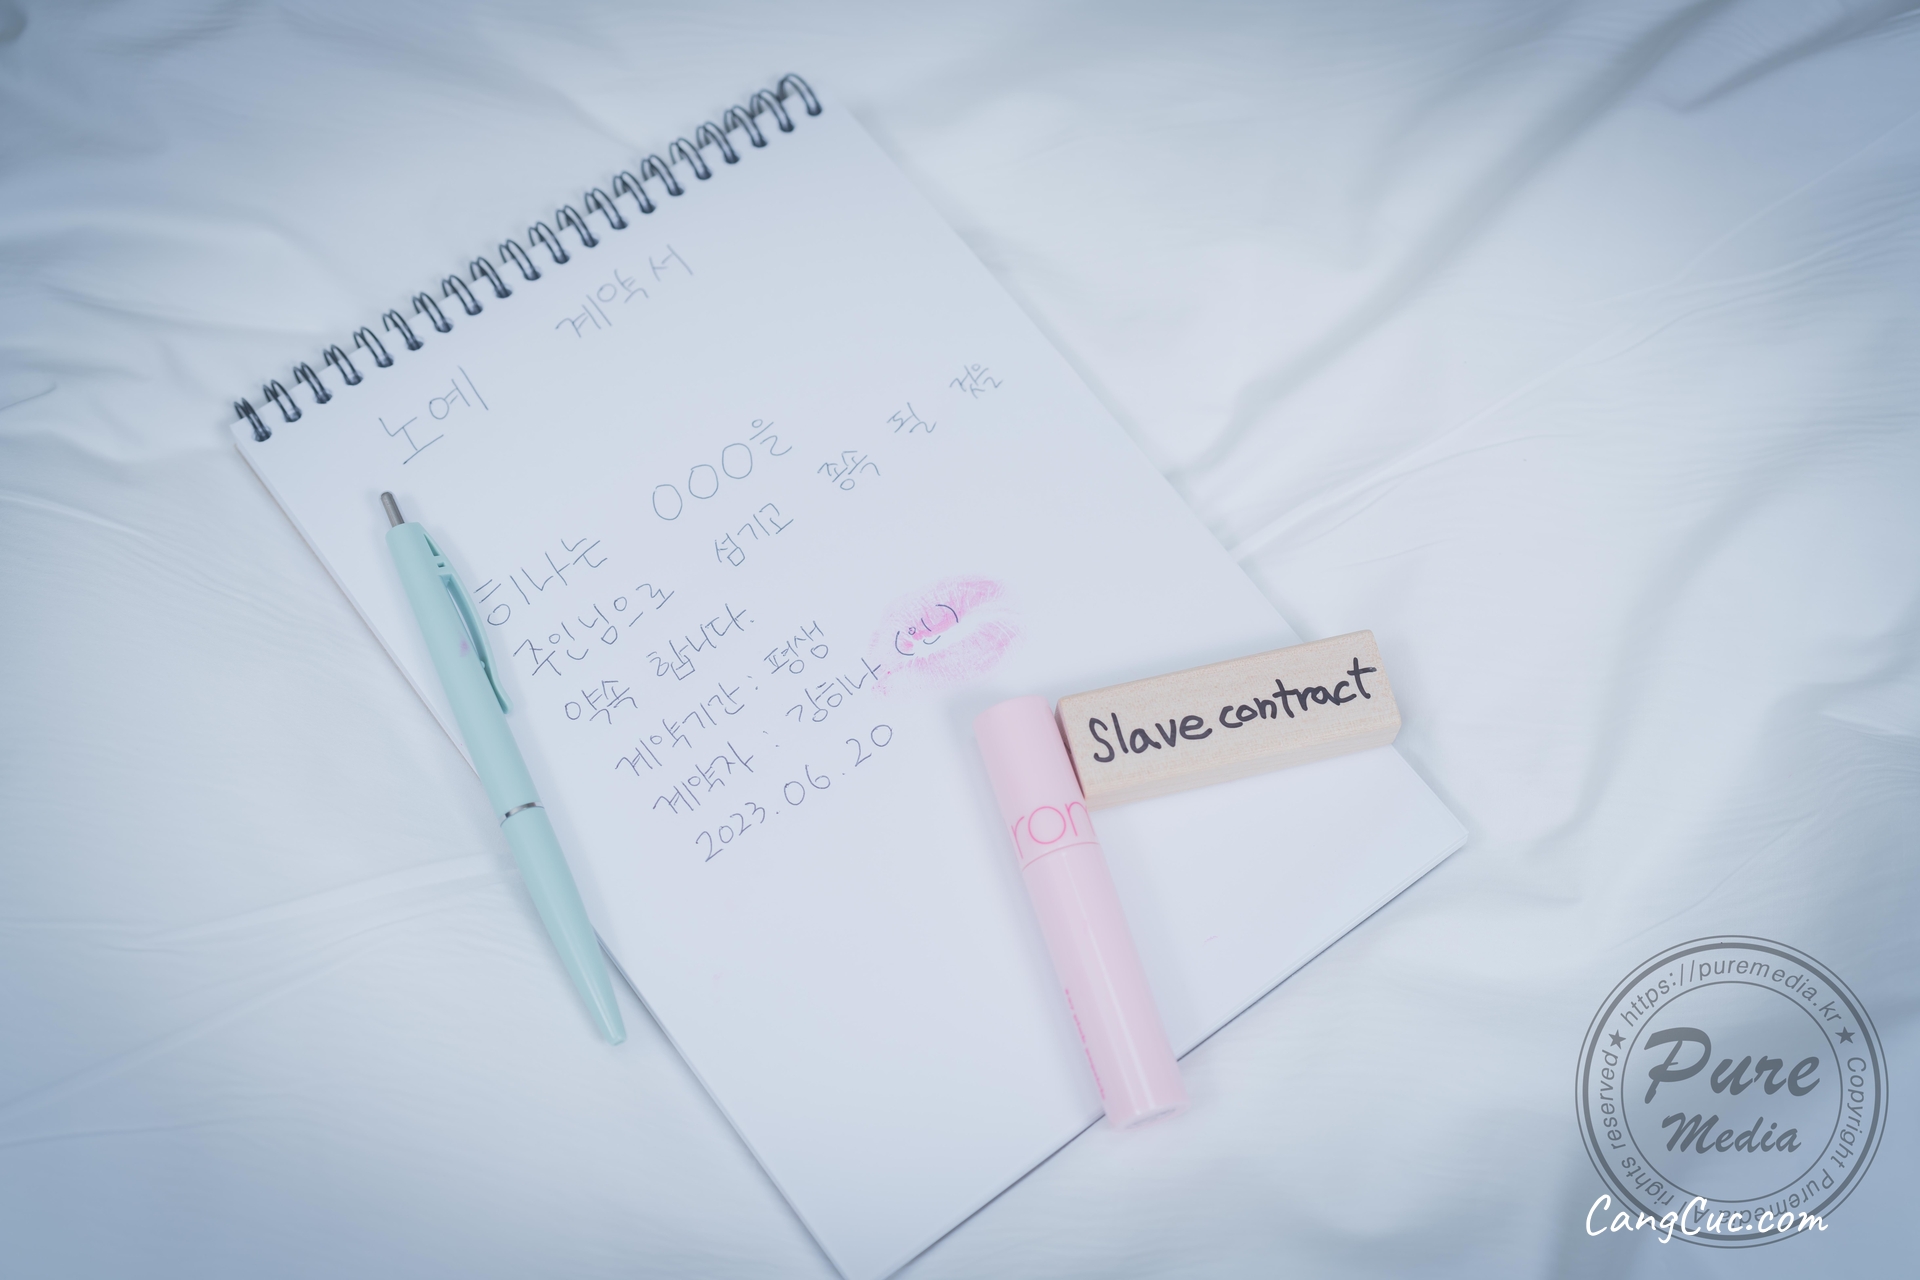 노예 계약서
히나는 OOO을
주인님으로 섬기고 쫑속 될 것을
약속 합니다.
계약기간 : 평생
계약자 : 강히나 (인)
2023. 06. 20
Slave contract
ron
https://puremedia.kr ★ Copyright Puremedia All rights reserved ★
Pure
Media
CangCuc.com